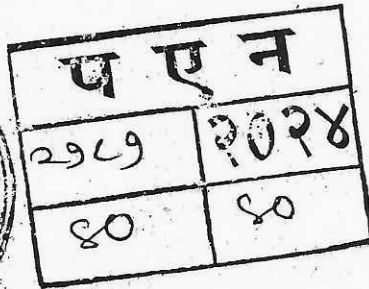 प ए न
२७८७ २०२४
४० ४०